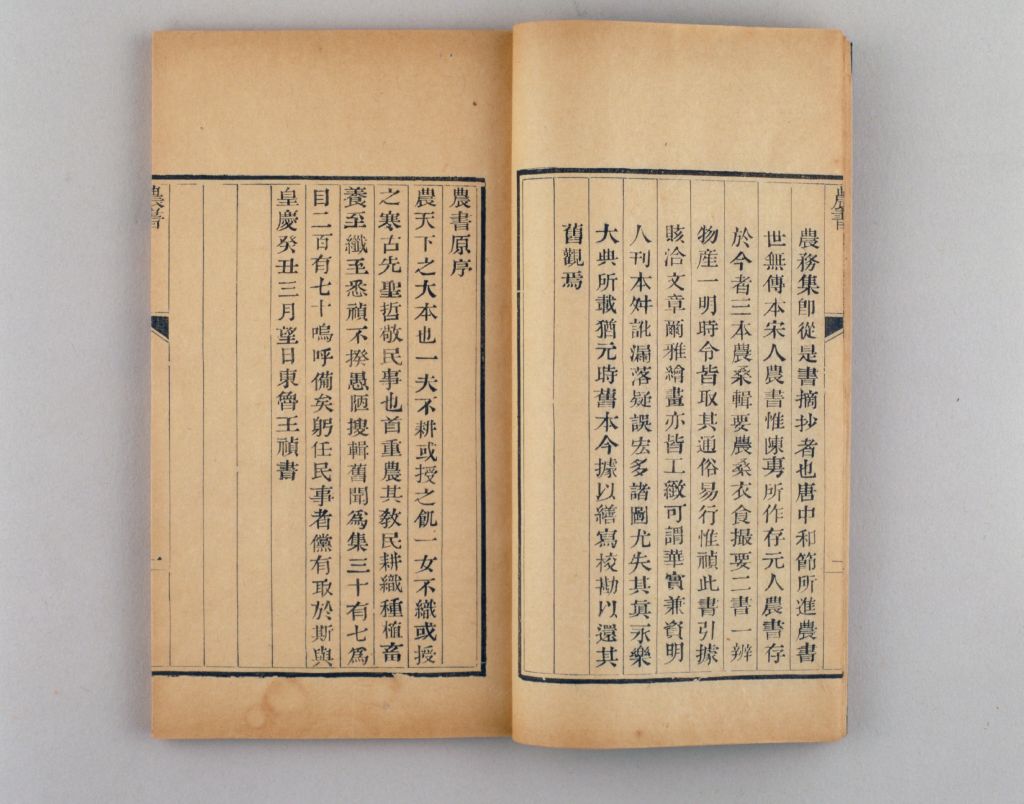 農書
農務集卽從是書摘抄者也唐中和節所進農書
世無傳本宋人農書惟陳旉所作存元人農書存
於今者三本農桑輯要農桑衣食撮要二書一辨
物産一明時令皆取其通俗易行惟禎此書引據
賅洽文章爾雅繪畫亦皆工緻可謂華實兼資明
人刊本舛訛漏落疑誤宏多諸圖尤失其眞永樂
大典所載猶元時舊本今據以繕寫校勘以還其
舊觀焉
二
農書原序
農天下之大本也一夫不耕或授之飢一女不織或授
之寒古先聖哲敬民事也首重農其敎民耕織種植畜
養至纖至悉禎不揆愚陋搜輯舊聞爲集三十有七爲
目二百有七十嗚呼備矣躬任民事者儻有取於斯與
皇慶癸丑三月望日東魯王禎書
農書
一